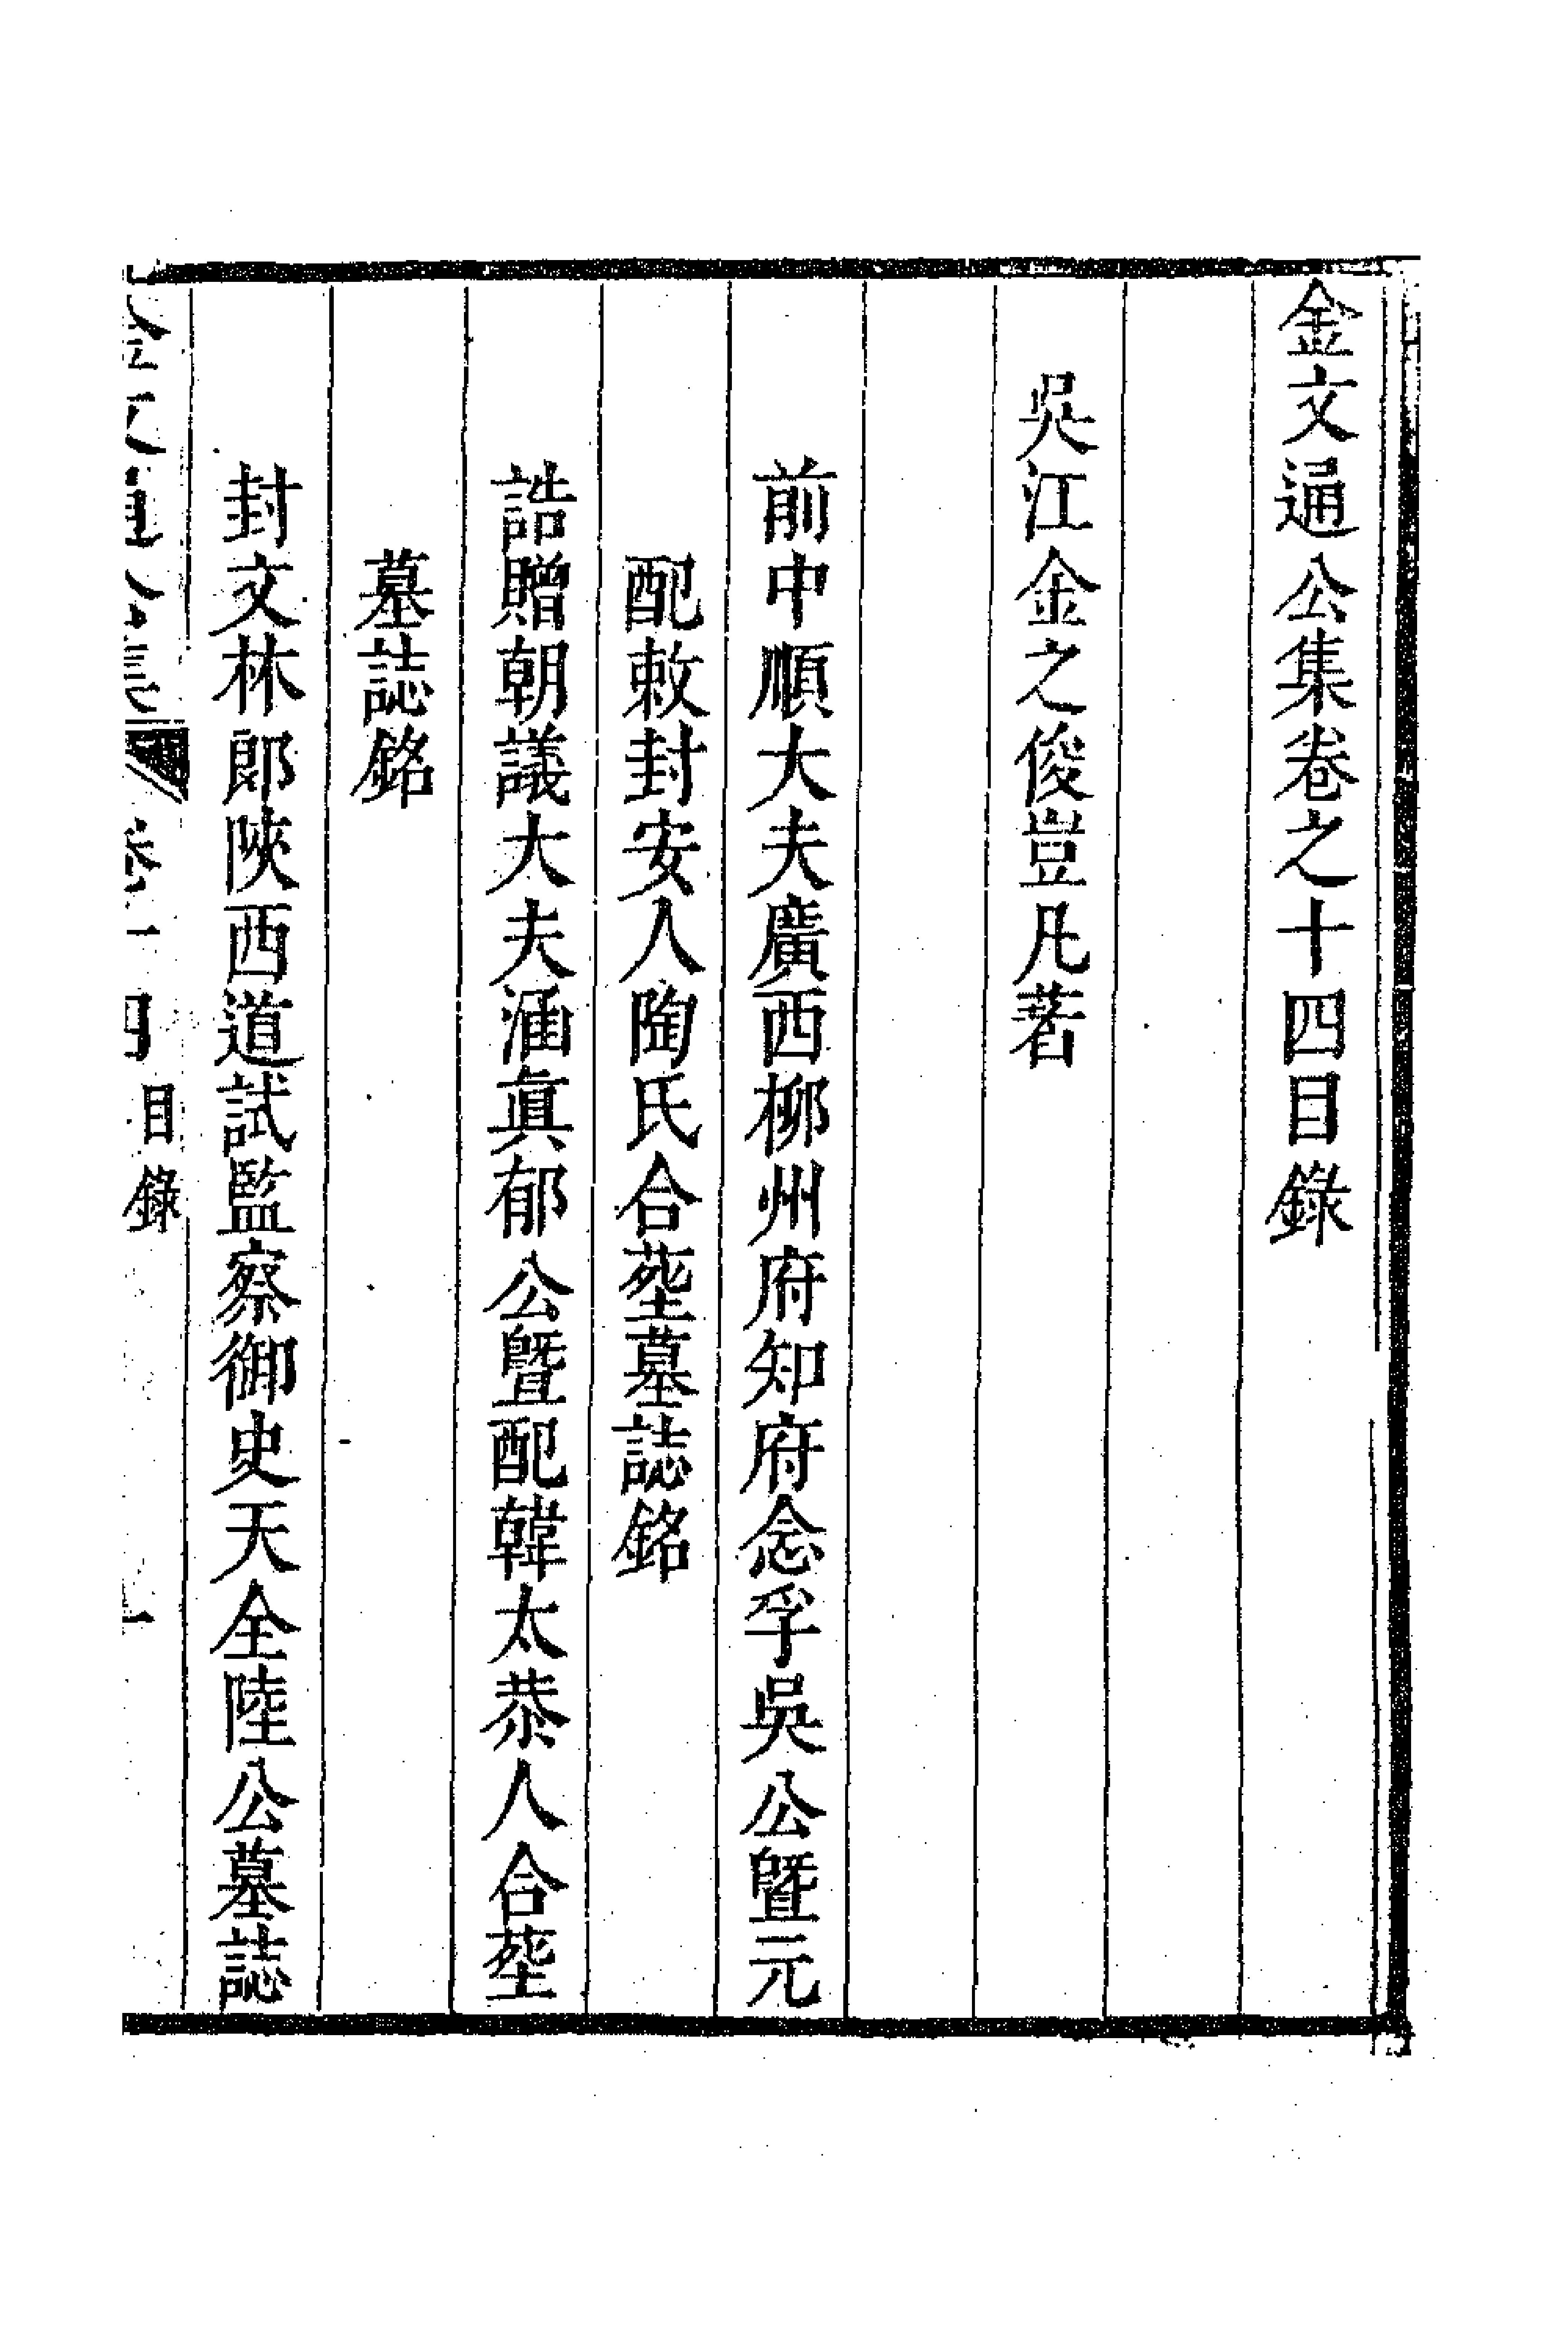 金文通公集卷之十四目錄
吳江金之俊豈凡著
前中順大夫廣西柳州府知府念孚吳公曁元
配敕封安人陶氏合塟墓誌銘
誥贈朝議大夫涵眞郁公曁配韓太恭人合塟
墓誌銘
封文林郎陜西道試監察御史天全陸公墓誌
金文通公集 卷十四 目錄 一